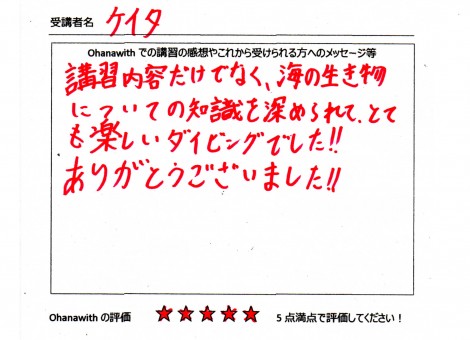 受講者名 ケイタ
Ohanawith での講習の感想やこれから受けられる方へのメッセージ等
講習内容だけでなく、海の生き物
についての知識を深められて、とて
も楽しいダイビングでした!!
ありがとうございました!!
Ohanawith の評価 ★★★★★ 5 点満点で評価してください!